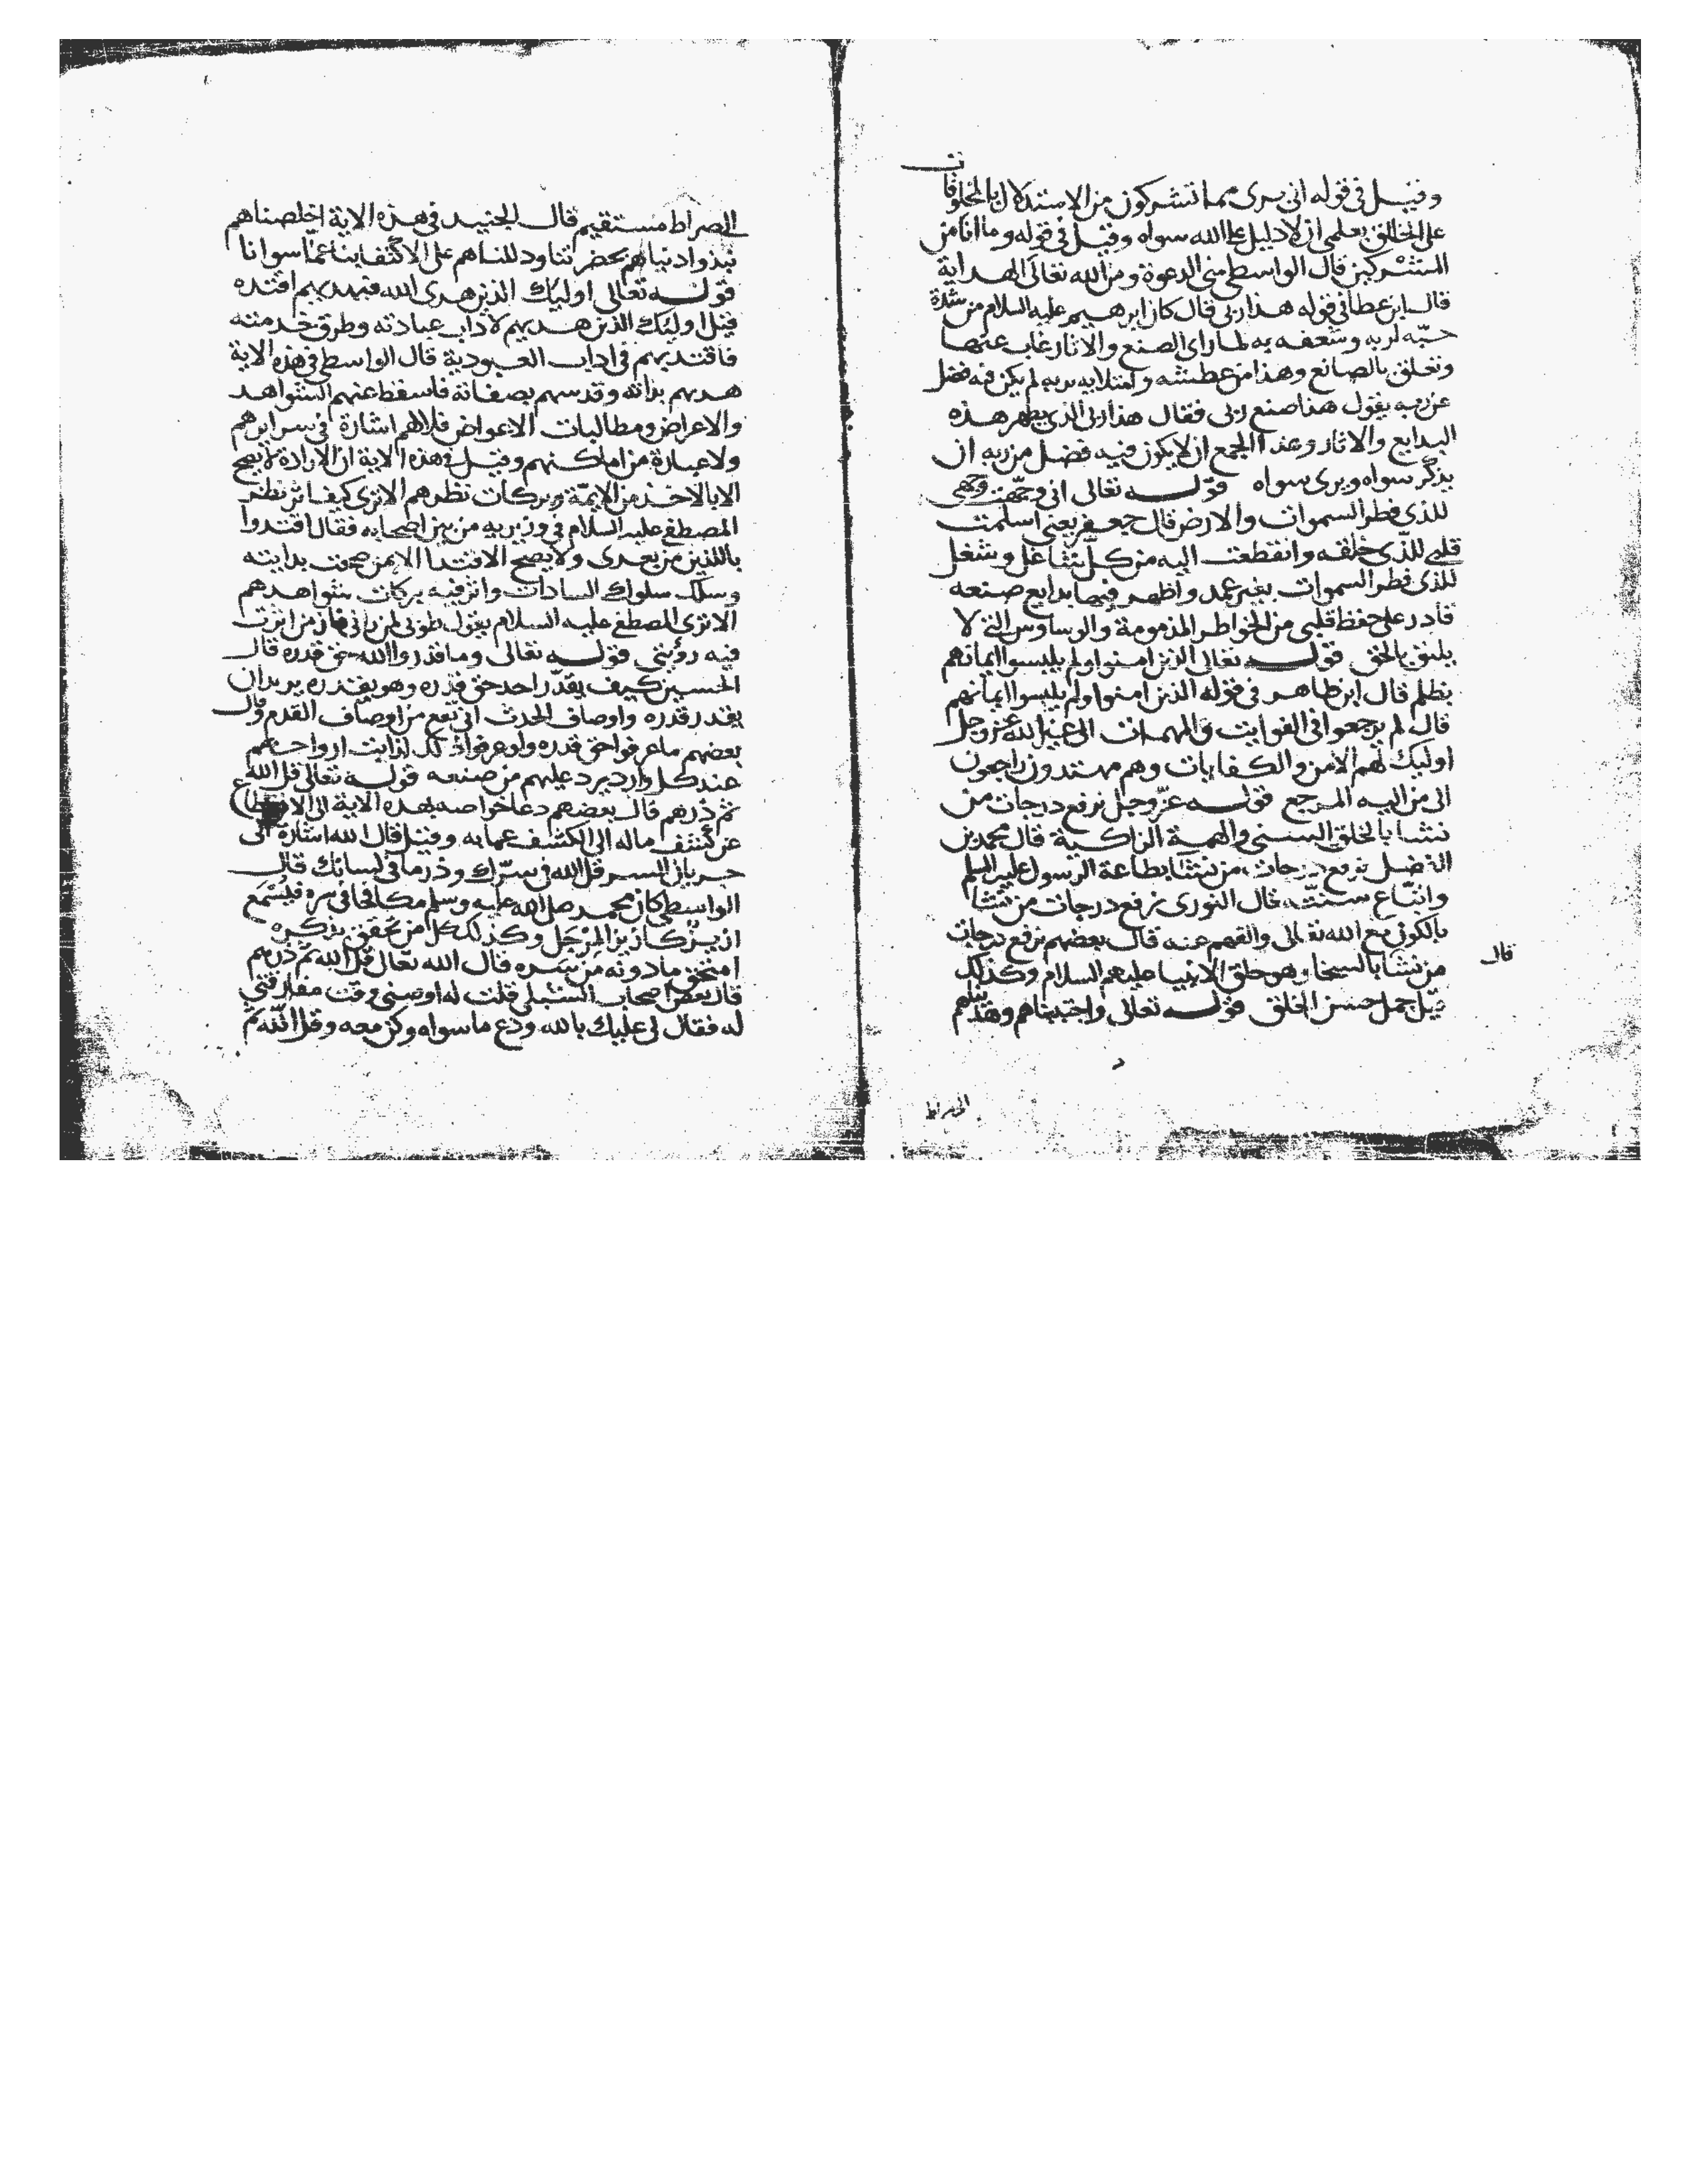 وقيل في قوله اني بري مما تشركون من الاستدلال بالمخلوقات
على الخالق بعلمي ان لا دليل على الله سواه وقيل في قوله وما انا من
المشركين قال الواسطي مني الدعوة ومن الله تعالى الهداية
قال ابن عطا في قوله هذا ربي قال كان ابرهيم عليه السلام من شدة
حبه لربه وشعفه به لما راى الصنع والاثار غاب عنها
وتعلق بالصانع وهذا من عطشه وامتلايه بربه لم يكن فيه فضل
عن ربه يقول هذا صنع ربي فقال هذا ربي الذي يظهر هذه
البدايع والاثار وعند الجمع ان لا يكون فيه فضل من ربه ان
يذكر سواه ويرى سواه قوله تعالى اني وجهت وجهي
للذي فطر السموات والارض قال جعفر يعني اسلمت
قلبي للذي خلقه وانقطعت اليه من كل شاغل وشغل
للذي فطر السموات بغير عمد واظهر فيها بدايع صنعه
قادر على حفظ قلبي من الخواطر المذمومة والوساوس التي لا
يليق بالحق قوله تعالى الذين امنوا ولم يلبسوا ايمانهم
بظلم قال ابن طاهر في قوله الذين امنوا ولم يلبسوا ايمانهم
قال لم يرجعوا في الفوايت والمهمات الى غير الله عز وجل
اوليك لهم الامن والكفايات وهم مهتدون راجعون
الى من اليه المرجع قوله عز وجل نرفع درجات من
نشا بالخلق السني والهمة الزاكية قال محمد بن
الفضل نرفع درجات من نشا بطاعة الرسول عليه السلم
واتباع سنته قال النوري نرفع درجات من نشا
بالكون مع الله تعالى والفهم عنه قال بعضهم نرفع درجات
من نشا بالسخا وهو خلق الانبيا عليهم السلام وكذلك
قال
قيل حسن الخلق قوله تعالى واجتبيناهم وهديناهم
الى صراط
الى صراط مستقيم قال الجنيد في هذه الاية اخلصناهم
لحضرتنا ودللناهم على الاكتفا بنا عما سوانا
قوله تعالى اوليك الذين هدى الله فبهديهم اقتده
قيل اوليك الذين هديهم لاداب عبادته وطرق خدمته
فاقتد بهم في اداب العبودية قال الواسطي في هذه الاية
هديهم بذاته وقدسهم بصفاته فاسقط عنهم الشواهد
والاعراض ومطالبات الاعواض فلا لهم اشارة في سرايرهم
ولا عبارة من اماكنهم وقيل في هذه الاية ان الارادة لا يصح
الا بالاخذ من الايمة وبركات نظرهم الا ترى كيف اثر نظر
المصطفى عليه السلام في وزيريه من بين اصحابه فقال اقتدوا
باللذين من بعدي ولا يصح الاقتدا الا بمن صحت بدايته
وسلك سلوك السادات واثر فيه بركات شواهدهم
الا ترى المصطفى عليه السلام يقول طوبى لمن راني فاز من اثرت
فيه رؤيتي قوله تعالى وما قدروا الله حق قدره قال
الحسين كيف يقدر احد حق قدره وهو بقدره يريد ان
يقدر قدره واوصاف الحدث اني تقع من اوصاف القدم وقال
بعضهم ما عرفوا حق قدره ولو عرفوا ذلك لذابت ارواحهم
عند كل وارد يرد عليهم من صنعه قوله تعالى قل الله
ثم ذرهم قال بعضهم دعا خواصه بهذه الاية الى الانقطاع
عن كشف ماله الى الكشف عما به وقيل قال الله اشارة الى
جريان السر قل الله في سرك وذر ما في لسانك قال
الواسطي كان محمد صلى الله عليه وسلم مكافحا في سره فيسمع
ازيز كازيز المرجل وكذلك كل من تحقق بذكره
امتحق ما دونه من سره قال الله تعالى قل الله ثم ذرهم
قال بعض اصحاب الشبلي قلت له اوصني وقت مفارقتي
له فقال لي عليك بالله ودع ما سواه وكن معه وقل الله ثم